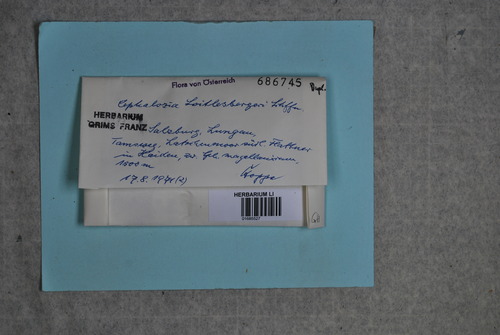 Flora von Österreich 686745 Dupl.
Cephalozia Loitlesbergeri Schffn.
HERBARIUM
GRIMS FRANZ
Salzburg, Lungau,
Tamsweg, südl.
in Heiden, Sph. magellanicum,
1500 m
17.8.1974 Koppe
HERBARIUM LI